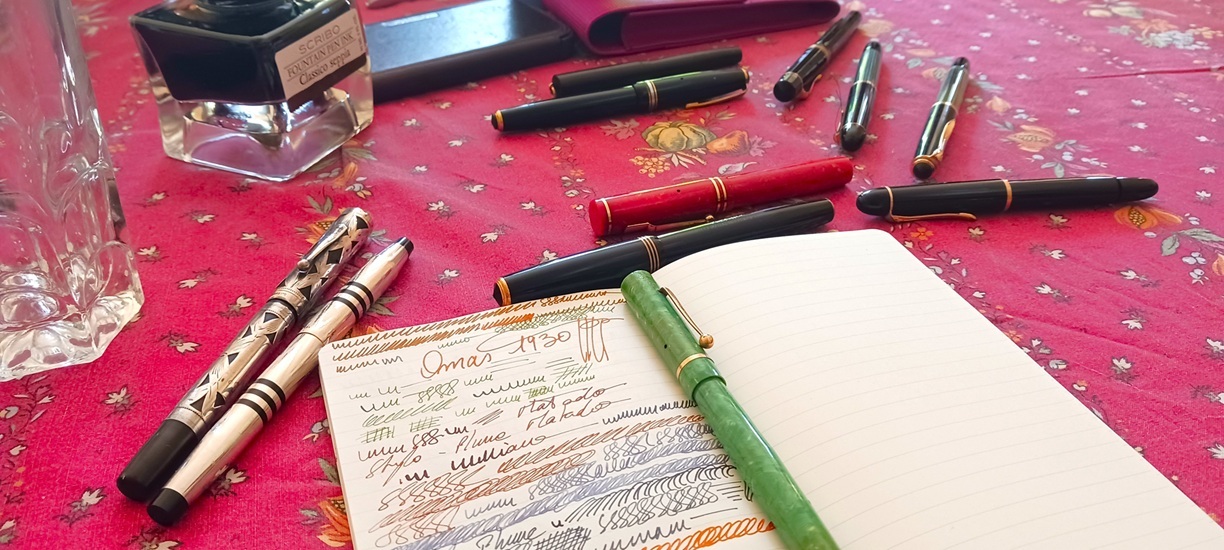 SCRIBO
FOUNTAIN PEN INK
Classico seppia
Omas 1930
Matador
Stylo - Plume Matador
Plume